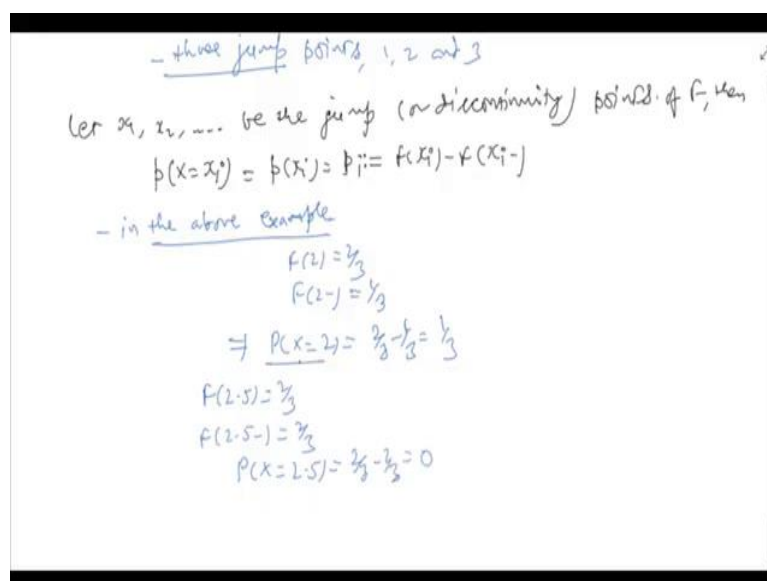 - three jump points, 1, 2 and 3
Let x1, x2, .... be the jump (or discontinuity) points of F, then
p(X=xi) = p(xi) = pi := F(xi) - F(xi-)
- in the above example
F(2) = 2/3
F(2-) = 1/3
⇒ P(X=2) = 2/3 - 1/3 = 1/3
F(2.5) = 2/3
F(2.5-) = 2/3
P(X=2.5) = 2/3 - 2/3 = 0